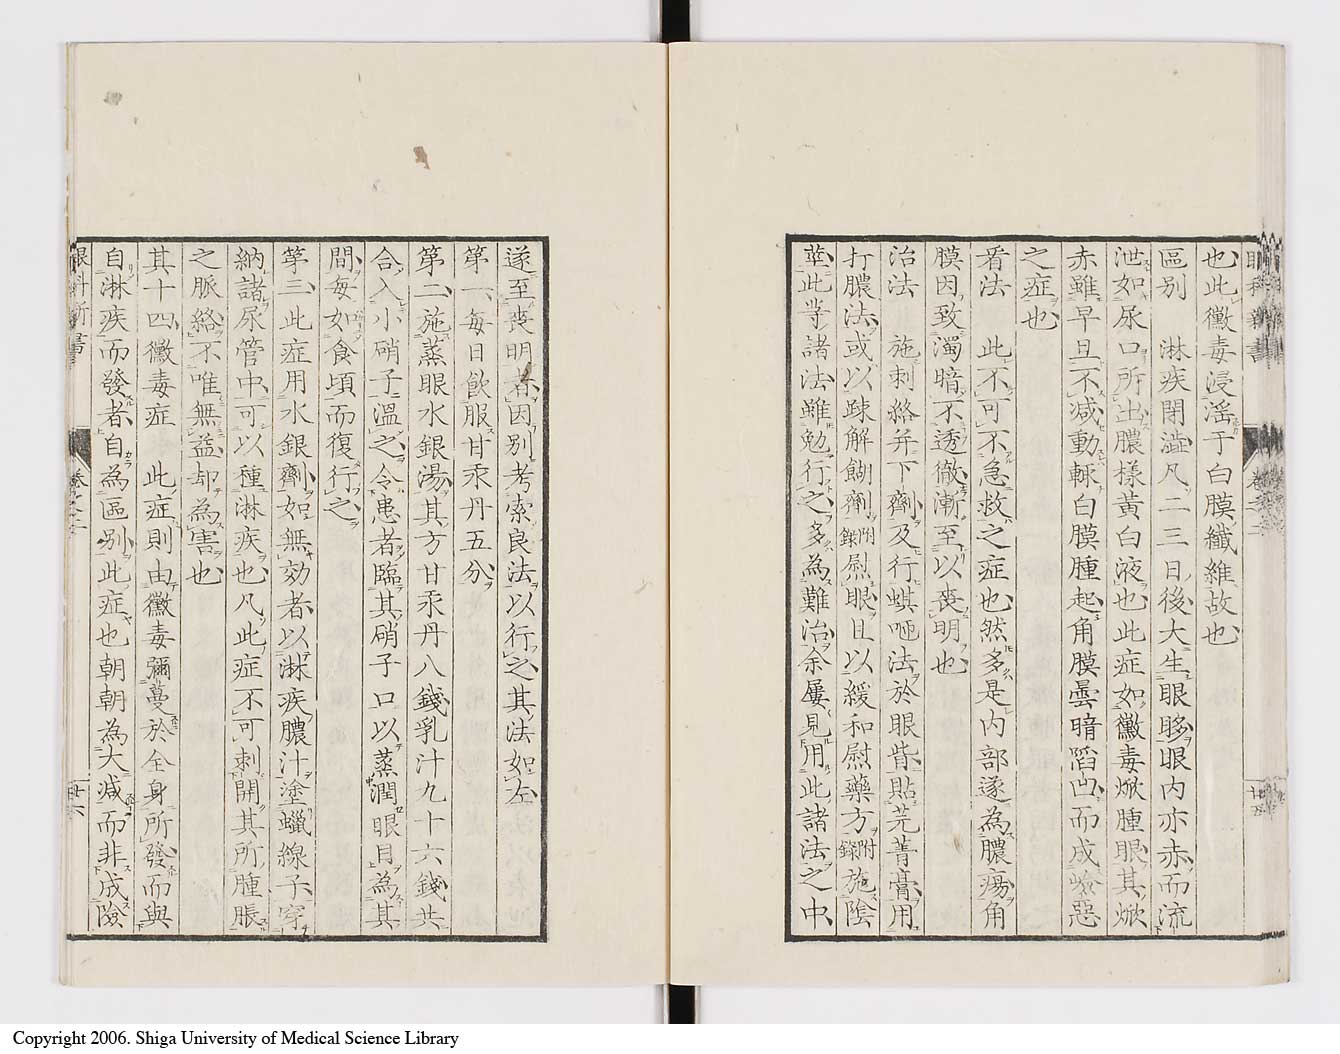 也此黴毒浸淫于白膜纖維故也
區別　淋疾閉澁凡二三日後大生眼眵眼内亦赤而流
泄如尿口所出膿樣黃白液也此症如黴毒焮腫眼其焮
赤雖早且不減動輙白膜腫起角膜曇暗陷凹而成嶮惡
之症也
看法　此不可不急救之症也然多是内部遂為膿瘍角
膜因致濁暗不透徹漸至以喪明也
治法　施刺絡并下劑及行蜞咂法於眼眥貼芫菁膏用
打膿法或以疎解餬劑附錄熨眼且以緩和熨藥方附錄施陰
莖此等諸法雖勉行之多為難治余屢見用此諸法之中
遂至喪明者因別考索良法以行之其法如左
第一每日飲服甘汞丹五分
第二施蒸眼水銀湯其方甘汞丹八錢乳汁九十六錢共
合入小硝子溫之令患者臨其硝子口以蒸潤眼目為其
間每如食頃而復行之
第三此症用水銀劑如無効者以淋疾膿汁塗蠟線子穿
納諸尿管中可以種淋疾也凡此症不可刺開其所腫脹
之脈絡不唯無益却為害也
其十四黴毒症　此症則由黴毒彌蔓於全身所發而與
自淋疾而發者自為區別此症也朝朝為大減而非成險
眼科新書
卷之二
廿六
Copyright 2006. Shiga University of Medical Science Library